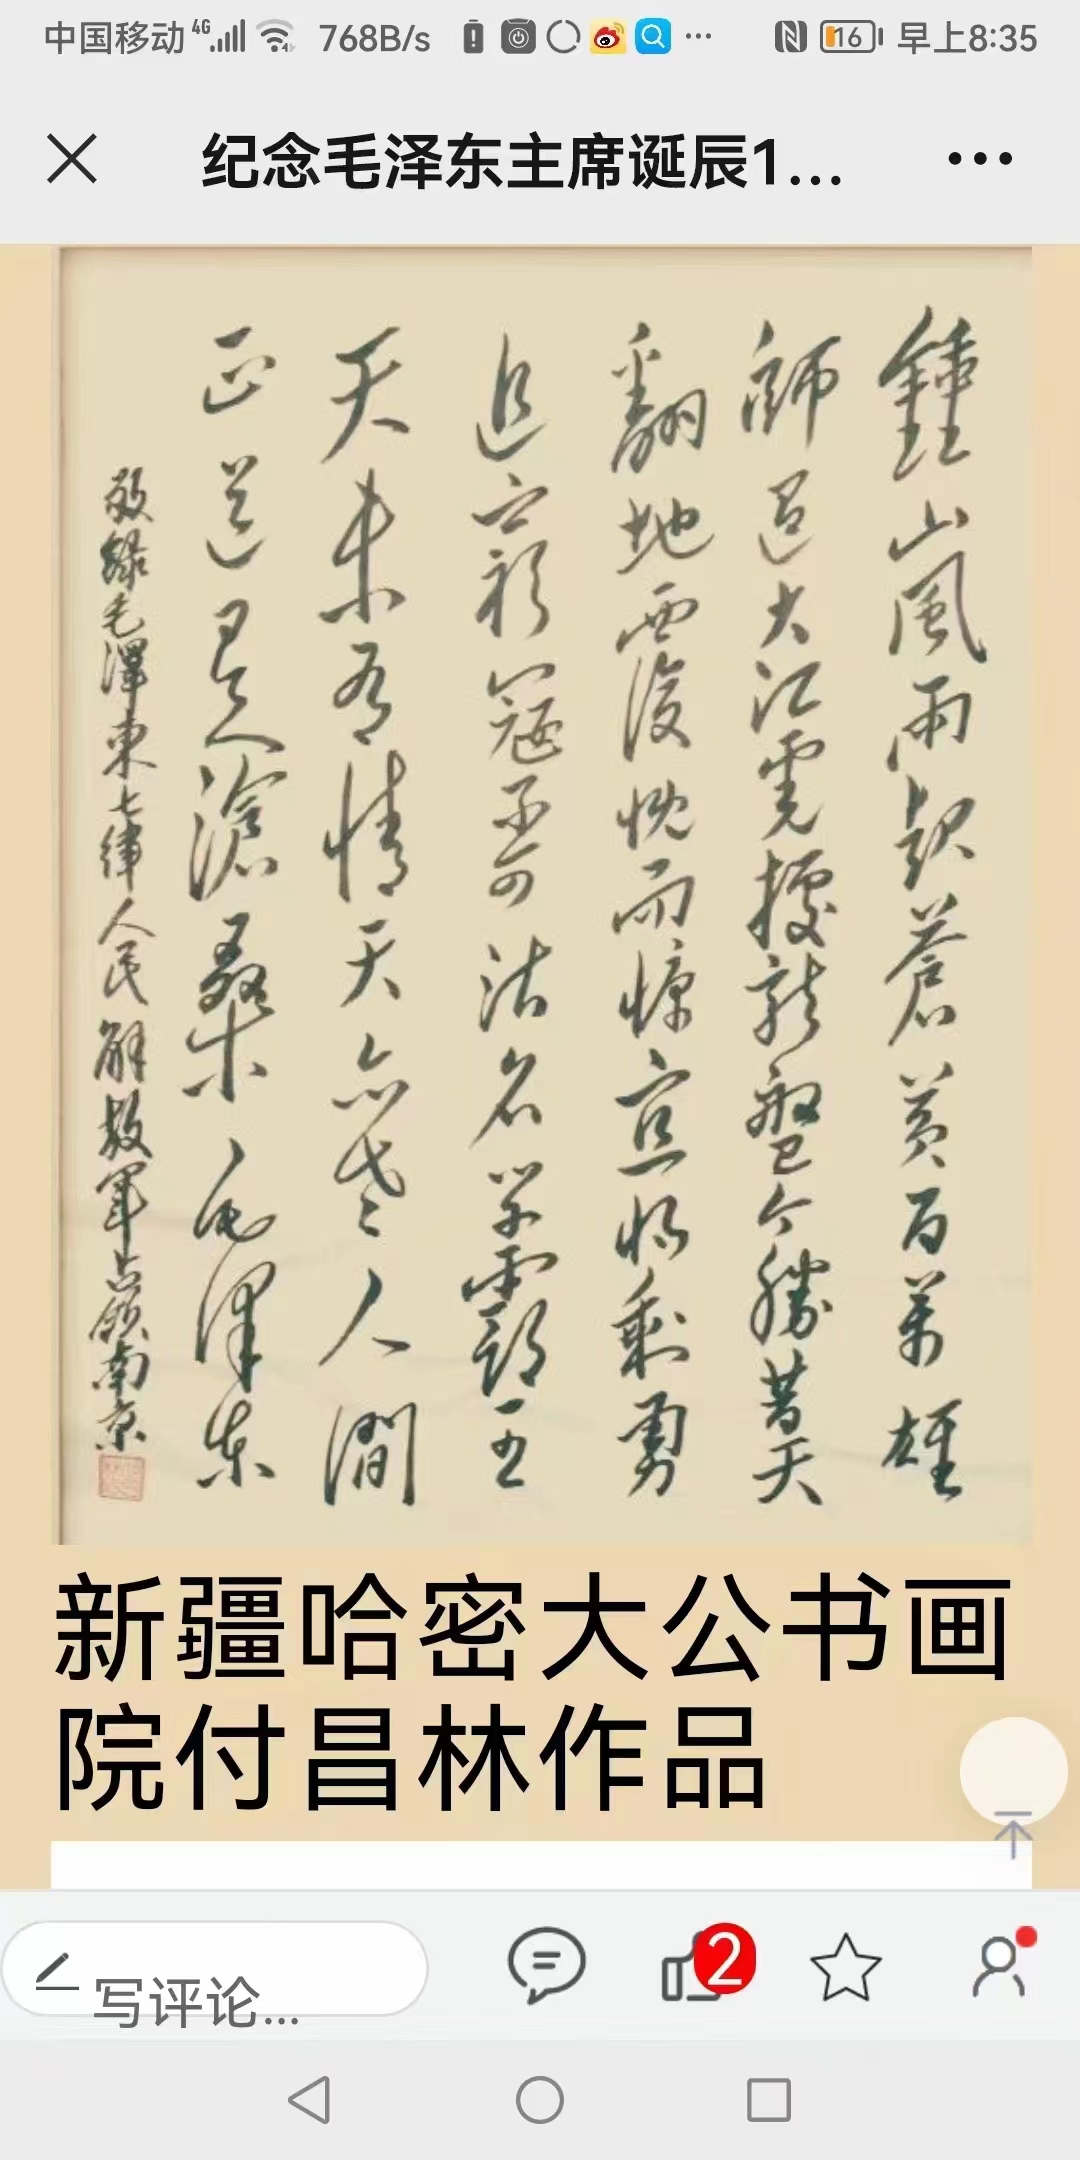 中国移动 4G 768B/s 16 早上8:35
纪念毛泽东主席诞辰1...
鍾山風雨起蒼黃百萬雄
師過大江虎據龍盤今勝昔天
翻地覆慨而慷宜將剩勇
追窮寇不可沽名學霸王
天若有情天亦老人間
正道是滄桑 毛澤东
敬錄毛澤東七律人民解放軍占领南京
新疆哈密大公书画
院付昌林作品
写评论...
2